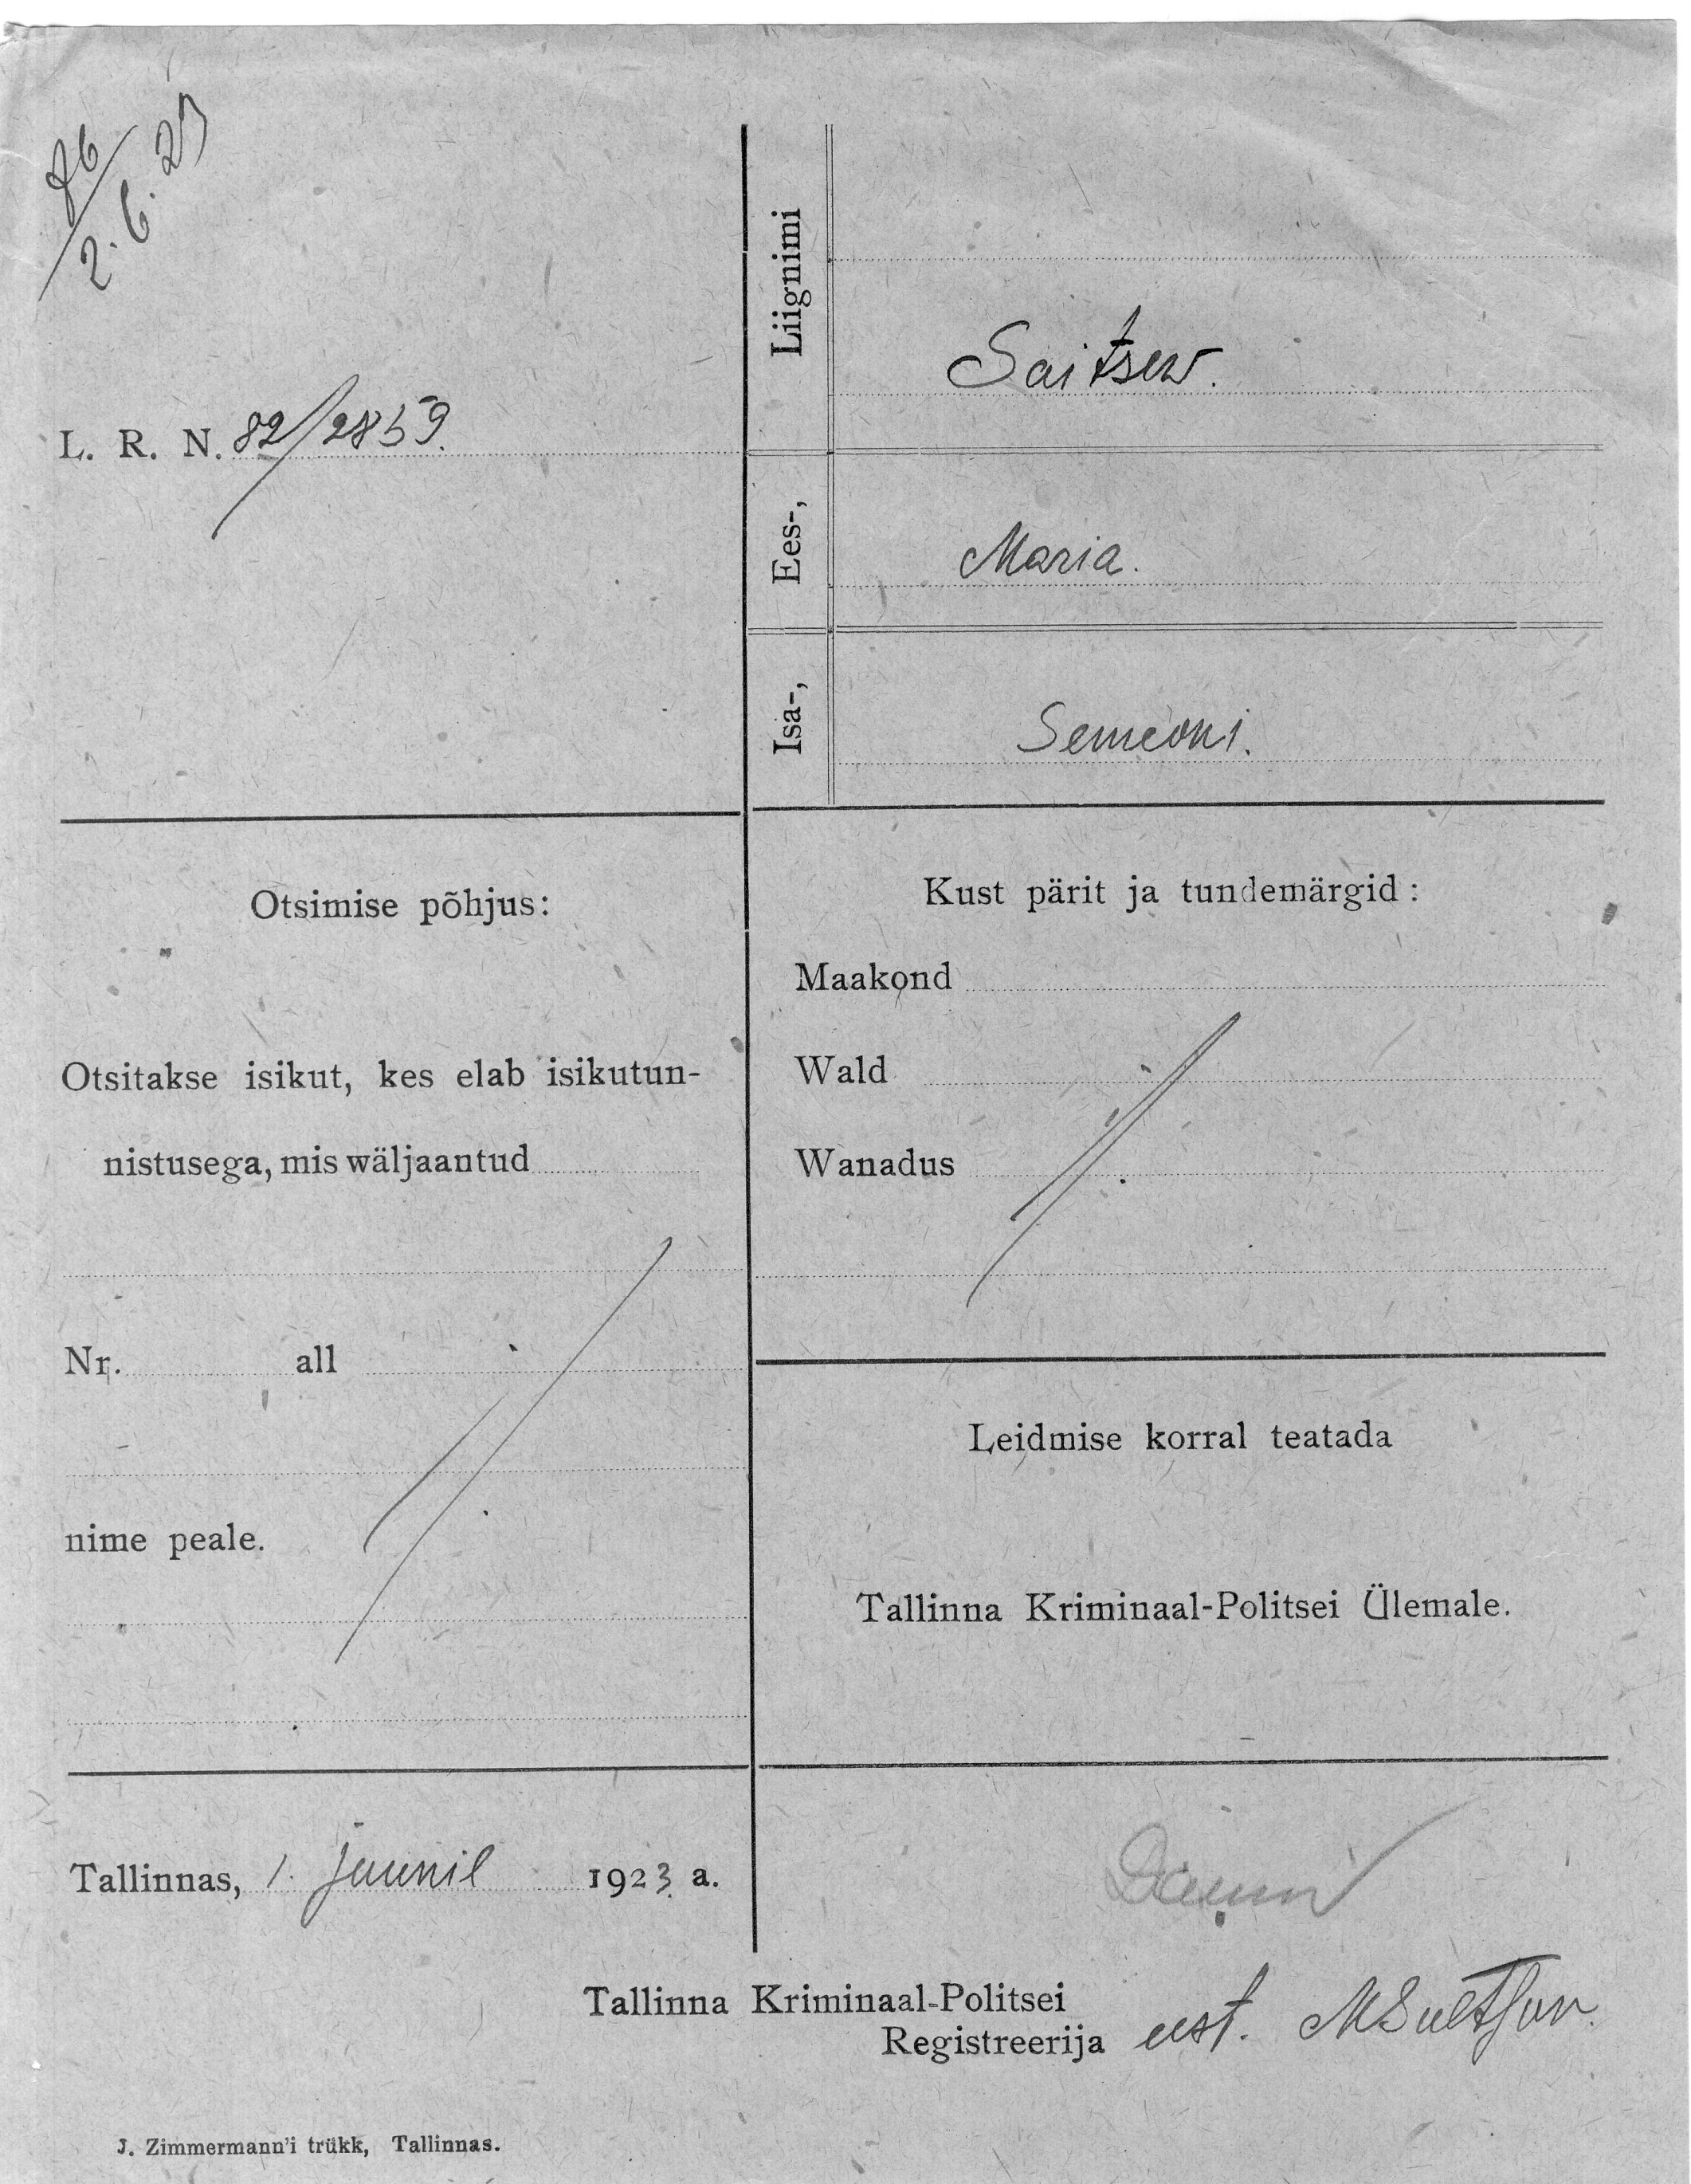 2. 6. 23
L. R. N. 82/2859.
Liignimi
Saitsew.
Ees-,
Maria.
Isa-,
Semeoni.
Otsimise põhjus:
Otsitakse isikut, kes elab isikutun-
nistusega, mis wäljaantud
Nr. all
nime peale.
Kust pärit ja tundemärgid:
Maakond
Wald
Wanadus
Leidmise korral teatada
Tallinna Kriminaal-Politsei Ülemale.
Tallinnas, 1. juunil 1923 a.
Tallinna Kriminaal-Politsei
Registreerija eest.
J. Zimmermann'i trükk, Tallinnas.